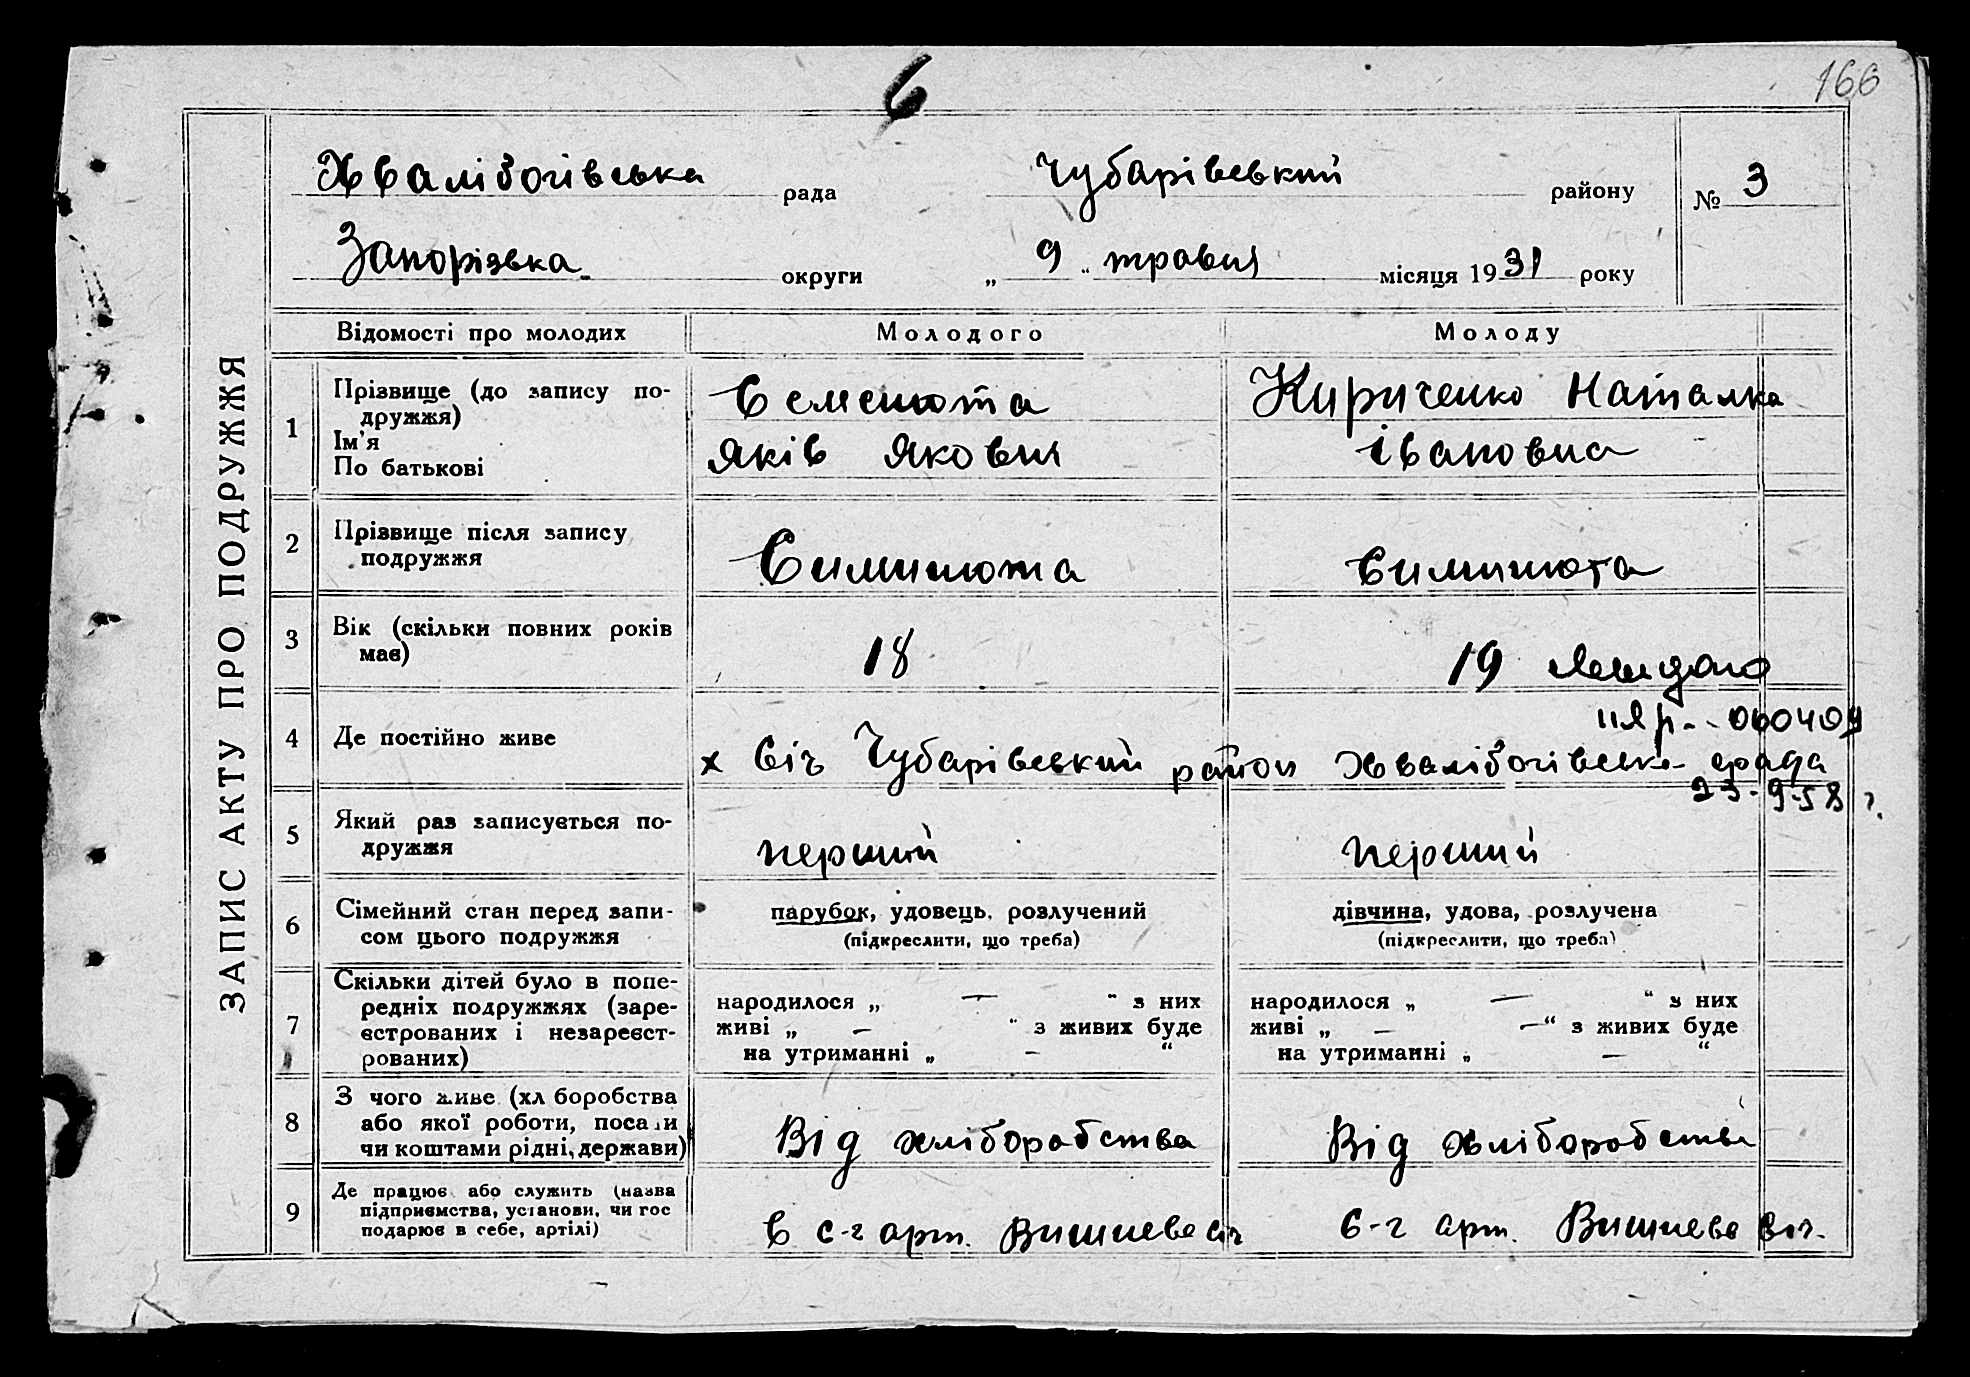 6
166
Хвалібогівська рада Чубарівський району № 3
Запорізька округи „ 9 “ травня місяця 1931 року
ЗАПИС АКТУ ПРО ПОДРУЖЖЯ
Відомості про молодих Молодого Молоду
1 Прізвище (до запису по-
дружжя)
Ім’я
По батькові
Семенюта
Яків Яковия
Кириченко Наталка
Івановна
2 Прізвище після запису
подружжя
Симинюта Симинюта
3 Вік (скільки повних років
має)
18 19
4 Де постійно живе
х Січ Чубарівський район Хвалібогівська рада
060409
23-9-58 г.
5 Який раз записується по-
дружжя
перший перший
6 Сімейний стан перед запи-
сом цього подружжя
парубок, удовець, розлучений
(підкреслити, що треба)
дівчина, удова, розлучена
(підкреслити, що треба)
7 Скільки дітей було в попе-
редніх подружжях (заре-
єстрованих і незареєст-
рованих)
народилося „ — “ з них
живі „ — “ з живих буде
на утриманні „ — “
народилося „ — “ з них
живі „ — — “ з живих буде
на утриманні „ — “
8 З чого живе (хл боробства
або якої роботи, посади
чи коштами рідні, держави)
Від хліборобства Від хліборобства
9 Де працює або служить (назва
підприємства, установи, чи гос
подарює в себе, артілі)
в с-г арт. Вишневе січ с-г арт. Вишневе січ.